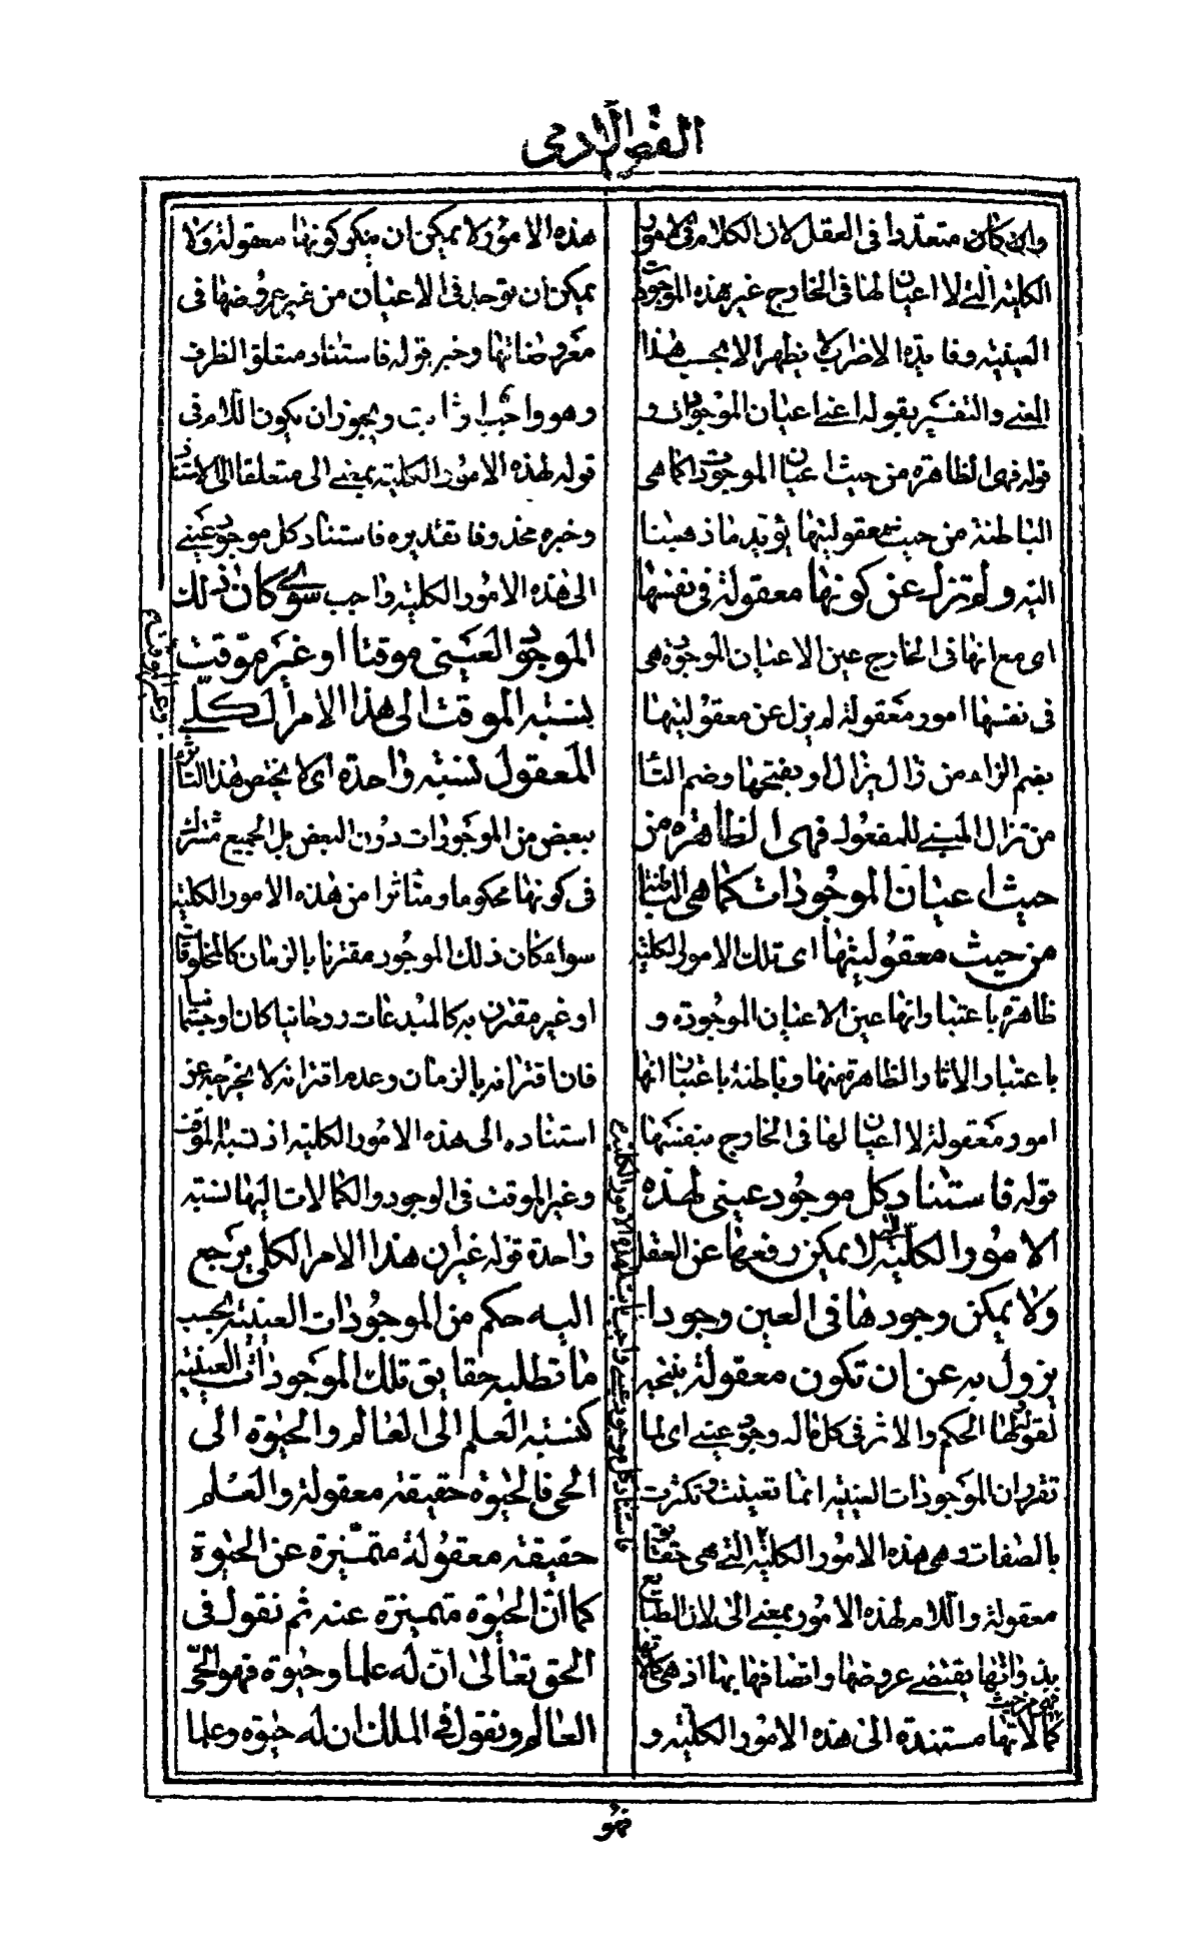 الفص الآدمي
وان كان متعددا فى العقل لان الكلام فى الامور
الكلية التى لا اعيان لها فى الخارج غير هذه الموجودات
العينية وفايدة الاضراب لا يظهر الا بحسب هذا
المعنى والتفسير بقوله اعنى اعيان الموجودات و
قوله فهى الظاهرة من حيث اعيان الموجودات كما هى
الباطنة من حيث معقوليتها يؤيد ما ذهبنا
اليه ولم تزل عن كونها معقولة فى نفسها
اى مع انها فى الخارج عين الاعيان الموجودة هى
فى نفسها امور معقولة لم يزل عن معقوليتها
بضم الزاء من زال يزال او بفتحها وضم التاء
من تزال المبنى للمفعول فهى الظاهرة من
حيث اعيان الموجودات كما هى الباطنة
من حيث معقوليتها اى تلك الامور الكلية
ظاهرة باعتبار انها عين الاعيان الموجودة و
باعتبار الاثار الظاهرة منها وباطنة باعتبار انها
امور معقولة لا اعيان لها فى الخارج بنفسها
قوله فاستناد كل موجود عينى لهذه
الامور الكلية التى لا يمكن رفعها عن العقل
ولا يمكن وجودها فى العين وجودا
يزول به عن ان تكون معقولة نتيجة
لقوله ولها الحكم والاثر فى كل ما له وجود عينى اى لما
تقرر ان الموجودات العينية انما تعينت وتكثرت
بالصفات وهى هذه الامور الكلية التى هى حقايق
معقولة واللام لهذه الامور بمعنى الى لان الطبايع
بذواتها يقتضى عروضها واتصافها بها اذ هى كمالاتها
فهى من حيث
كمالاتها مستندة الى هذه الامور الكلية و
فاستناد كل موجود عينى واجب لهذه الامور الكلية
هذه الامور لا يمكن ان ينكر كونها معقولة ولا
يمكن ان توجد فى الاعيان من غير عروضها فى
معروضاتها وخبر قوله فاستناد متعلق الظرف
وهو واجب او ثابت ويجوز ان يكون اللام فى
قوله لهذه الامور الكلية بمعنى الى متعلقا الى الاستناد
وخبره محذوفا تقديره فاستناد كل موجود عينى
الى هذه الامور الكلية واجب سواء كان ذلك
الموجود العينى موقتا او غير موقت
نسبة الموقت الى هذا الامر الكلى
المعقول نسبة واحدة اى لا يختص هذا التاثير
ببعض من الموجودات دون البعض بل الجميع مشترك
فى كونها محكوما ومتاثرا من هذه الامور الكلية
سواء كان ذلك الموجود مقترنا بالزمان كالمخلوقات
او غير مقترن به كالمبدعات روحانيا كان او جسمانيا
فان اقترانه بالزمان وعدم اقترانه لا يخرجه عن
استناده الى هذه الامور الكلية اذ نسبة الموقت
وغير الموقت فى الوجود والكمالات اليها نسبة
واحدة قوله غير ان هذا الامر الكلى يرجع
اليه حكم من الموجودات العينية بحسب
ما تطلبه حقايق تلك الموجودات العينية
كنسبة العلم الى العالم والحيوة الى
الحى فالحيوة حقيقة معقولة والعلم
حقيقة معقولة متميزة عن الحيوة
كما ان الحيوة متميزة عنه ثم نقول فى
الحق تعالى ان له علما وحيوة فهو الحى
العالم ونقول فى الملك ان له حيوة وعلما
فهو